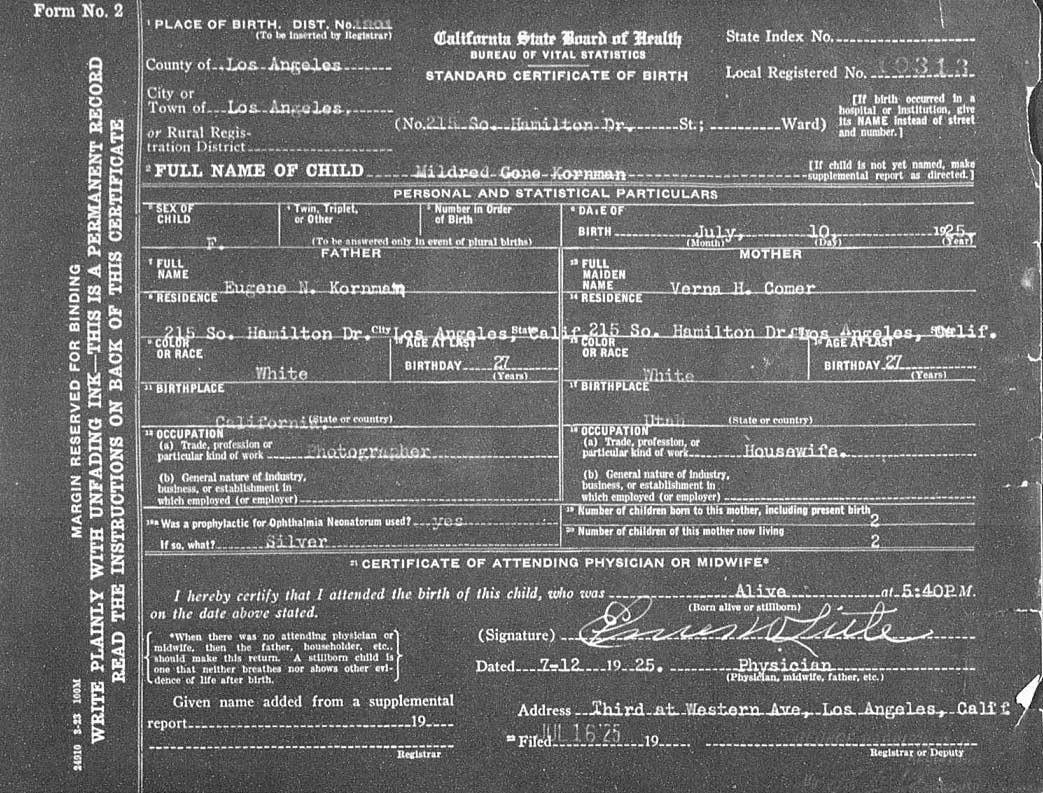 Form No. 2
MARGIN RESERVED FOR BINDING
WRITE PLAINLY WITH UNFADING INK—THIS IS A PERMANENT RECORD
READ THE INSTRUCTIONS ON BACK OF THIS CERTIFICATE
24910 3-23 100M
1 PLACE OF BIRTH. DIST. No. 1901
(To be inserted by Registrar)
California State Board of Health
BUREAU OF VITAL STATISTICS
STANDARD CERTIFICATE OF BIRTH
State Index No.
Local Registered No. 9313
County of Los Angeles
City or
Town of Los Angeles,
(No. 215 So. Hamilton Dr. St.; Ward)
[If birth occurred in a
hospital or institution, give
its NAME instead of street
and number.]
or Rural Regis-
tration District
2 FULL NAME OF CHILD Mildred Gene Kornman
[If child is not yet named, make
supplemental report as directed.]
PERSONAL AND STATISTICAL PARTICULARS
3 SEX OF
CHILD F.
4 Twin, Triplet,
or Other
5 Number in Order
of Birth
(To be answered only in event of plural births)
6 DATE OF
BIRTH July, 10, 1925,
(Month) (Day) (Year)
FATHER
7 FULL
NAME Eugene N. Kornman
8 RESIDENCE
215 So. Hamilton Dr. City Los Angeles, State Calif.
9 COLOR
OR RACE White
10 AGE AT LAST
BIRTHDAY 27
(Years)
11 BIRTHPLACE
California, (State or country)
12 OCCUPATION
(a) Trade, profession or
particular kind of work Photographer
(b) General nature of industry,
business, or establishment in
which employed (or employer)
MOTHER
13 FULL
MAIDEN
NAME Verna H. Comer
14 RESIDENCE
215 So. Hamilton Dr. City Los Angeles, State Calif.
15 COLOR
OR RACE White
16 AGE AT LAST
BIRTHDAY 27
(Years)
17 BIRTHPLACE
Utah (State or country)
18 OCCUPATION
(a) Trade, profession, or
particular kind of work Housewife.
(b) General nature of industry,
business, or establishment in
which employed (or employer)
19a Was a prophylactic for Ophthalmia Neonatorum used? yes
If so, what? Silver
19 Number of children born to this mother, including present birth 2
20 Number of children of this mother now living 2
21 CERTIFICATE OF ATTENDING PHYSICIAN OR MIDWIFE*
I hereby certify that I attended the birth of this child, who was Alive at 5:40P.M.
(Born alive or stillborn)
on the date above stated.
*When there was no attending physician or
midwife, then the father, householder, etc.,
should make this return. A stillborn child is
one that neither breathes nor shows other evi-
dence of life after birth.
(Signature)
Dated 7-12 1925. Physician
(Physician, midwife, father, etc.)
Given name added from a supplemental
report 19
Registrar
Address Third at Western Ave, Los Angeles, Calif
22 Filed JUL 16 25 19
Registrar or Deputy